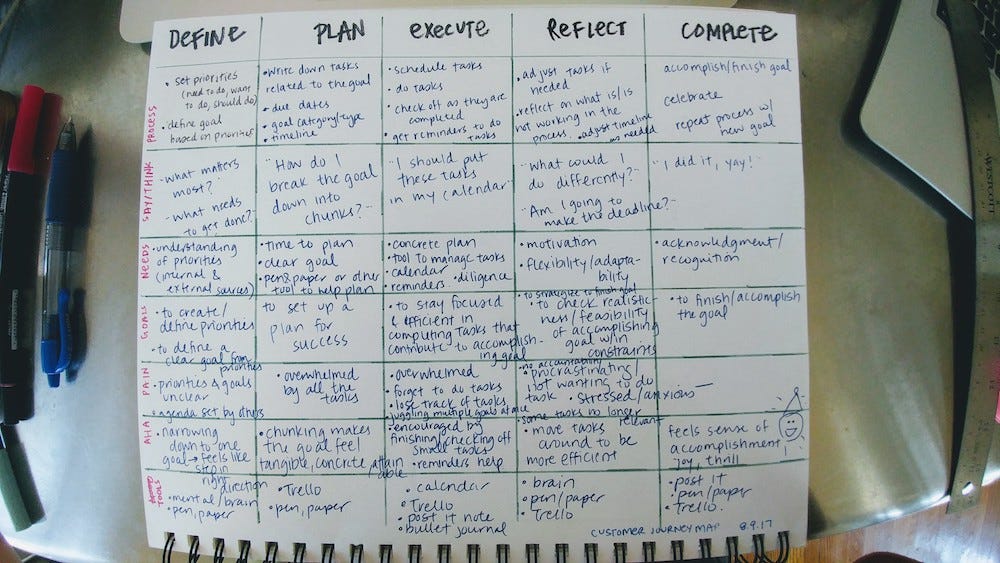 DEFINE
PLAN
EXECUTE
REFLECT
COMPLETE
PROCESS
• set priorities
(need to do, want
to do, should do)
• define goal
based on priorities
• write down tasks
related to the goal
• due dates
• goal category/type
• timeline
• schedule tasks
• do tasks
• check off as they are
completed
• get reminders to do
tasks
• adjust tasks if
needed
• reflect on what is/is
not working in the
process. • adjust timeline
as needed
accomplish/finish goal
celebrate
repeat process w/
new goal
SAY/THINK
"what matters
most?"
"what needs
to get done?"
"How do I
break the goal
down into
chunks?"
"I should put
these tasks
in my calendar"
"What could I
do differently?"
"Am I going to
make the deadline?"
"I did it, yay!"
NEEDS
• understanding
of priorities
(internal &
external sources)
• Time to plan
• clear goal
• pen & paper or other
tool to help plan
• concrete plan
• tool to manage tasks
• calendar
• reminders • diligence
• motivation
• flexibility/adapta-
bility
• acknowledgment/
recognition
GOALS
• to create/
define priorities
• to define a
clear goal from
priorities
to set up a
plan for
success
• to stay focused
& efficient in
computing tasks that
contribute to accomplish-
ing goal
• to strategize to finish goal
• to check realistic-
ness/feasibility
of accomplishing
goal w/in
constraints
• to finish/accomplish
the goal
PAIN
• priorities & goals
unclear
• agenda set by others
• overwhelmed
by all the
tasks
• overwhelmed
• forget to do tasks
• lose track of tasks
juggling multiple goals at once
• no accountability
• procrastinating/
not wanting to do
task • stressed/anxious
some tasks no longer
relevant
—
AHA
• narrowing
down to one
goal → feels like
step in
right
direction
• chunking makes
the goal feel
tangible, concrete, attain
able
• encouraged by
finishing/checking off
small tasks
• reminders help
• move tasks
around to be
more efficient
feels sense of
accomplishment
joy, thrill
TOOLS
• mental/brain
• pen, paper
• Trello
• pen, paper
• calendar
• Trello
• post it note
• bullet journal
• brain
• pen/paper
• Trello
• post it
• pen/paper
• Trello.
CUSTOMER JOURNEY MAP 8.9.17
WESTCOTT